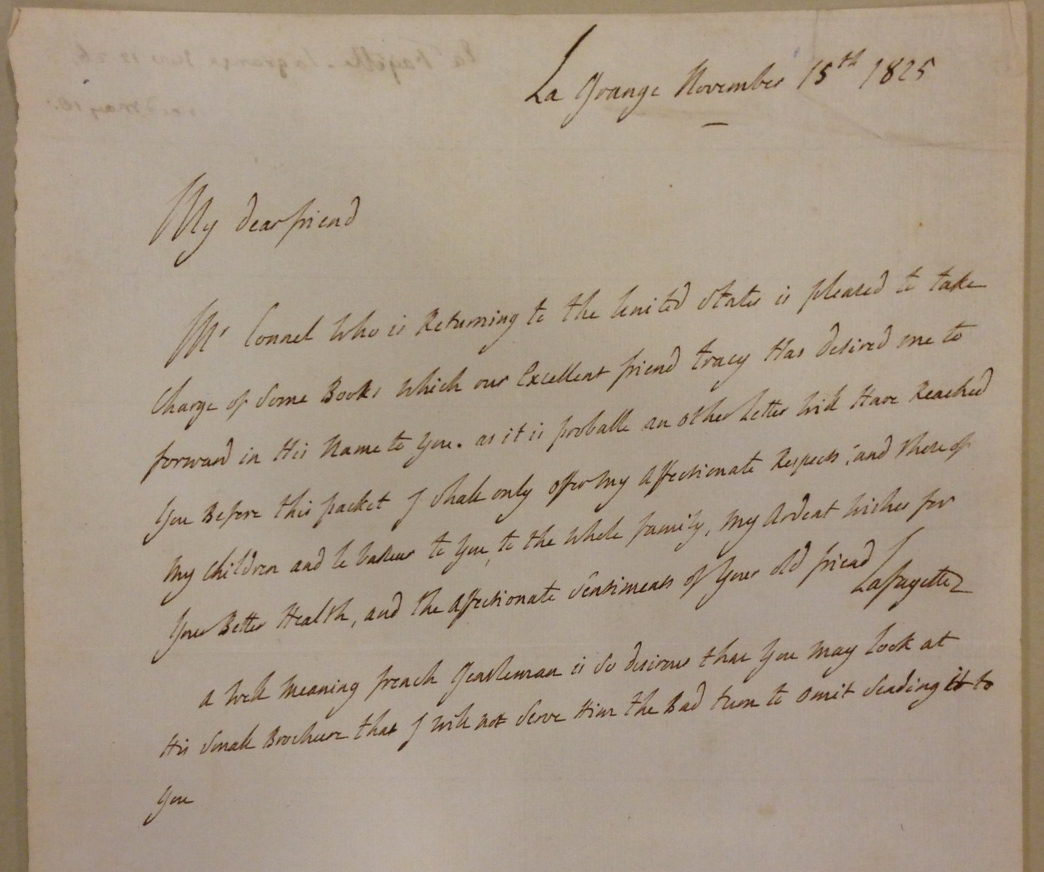 La Grange November 15th 1825
My dear friend
Mr Connel Who is Returning to the United States is pleased to take
Charge of Some Books which our Excellent friend tracy Has desired me to
forward in His Name to You. as it is probable an other Letter Will Have Reached
You Before this packet I shall only offer My Affectionate Respects, and those of
My children and le Vasseur to You, to the whole family, My Ardent wishes for
Your Better Health, and the Affectionate Sentiments of Your old friend
Lafayette
a Well Meaning french Gentleman is So desirous that You May look at
His Small Brochure that I will not Serve Him the Bad turn to omit Sending it to
You